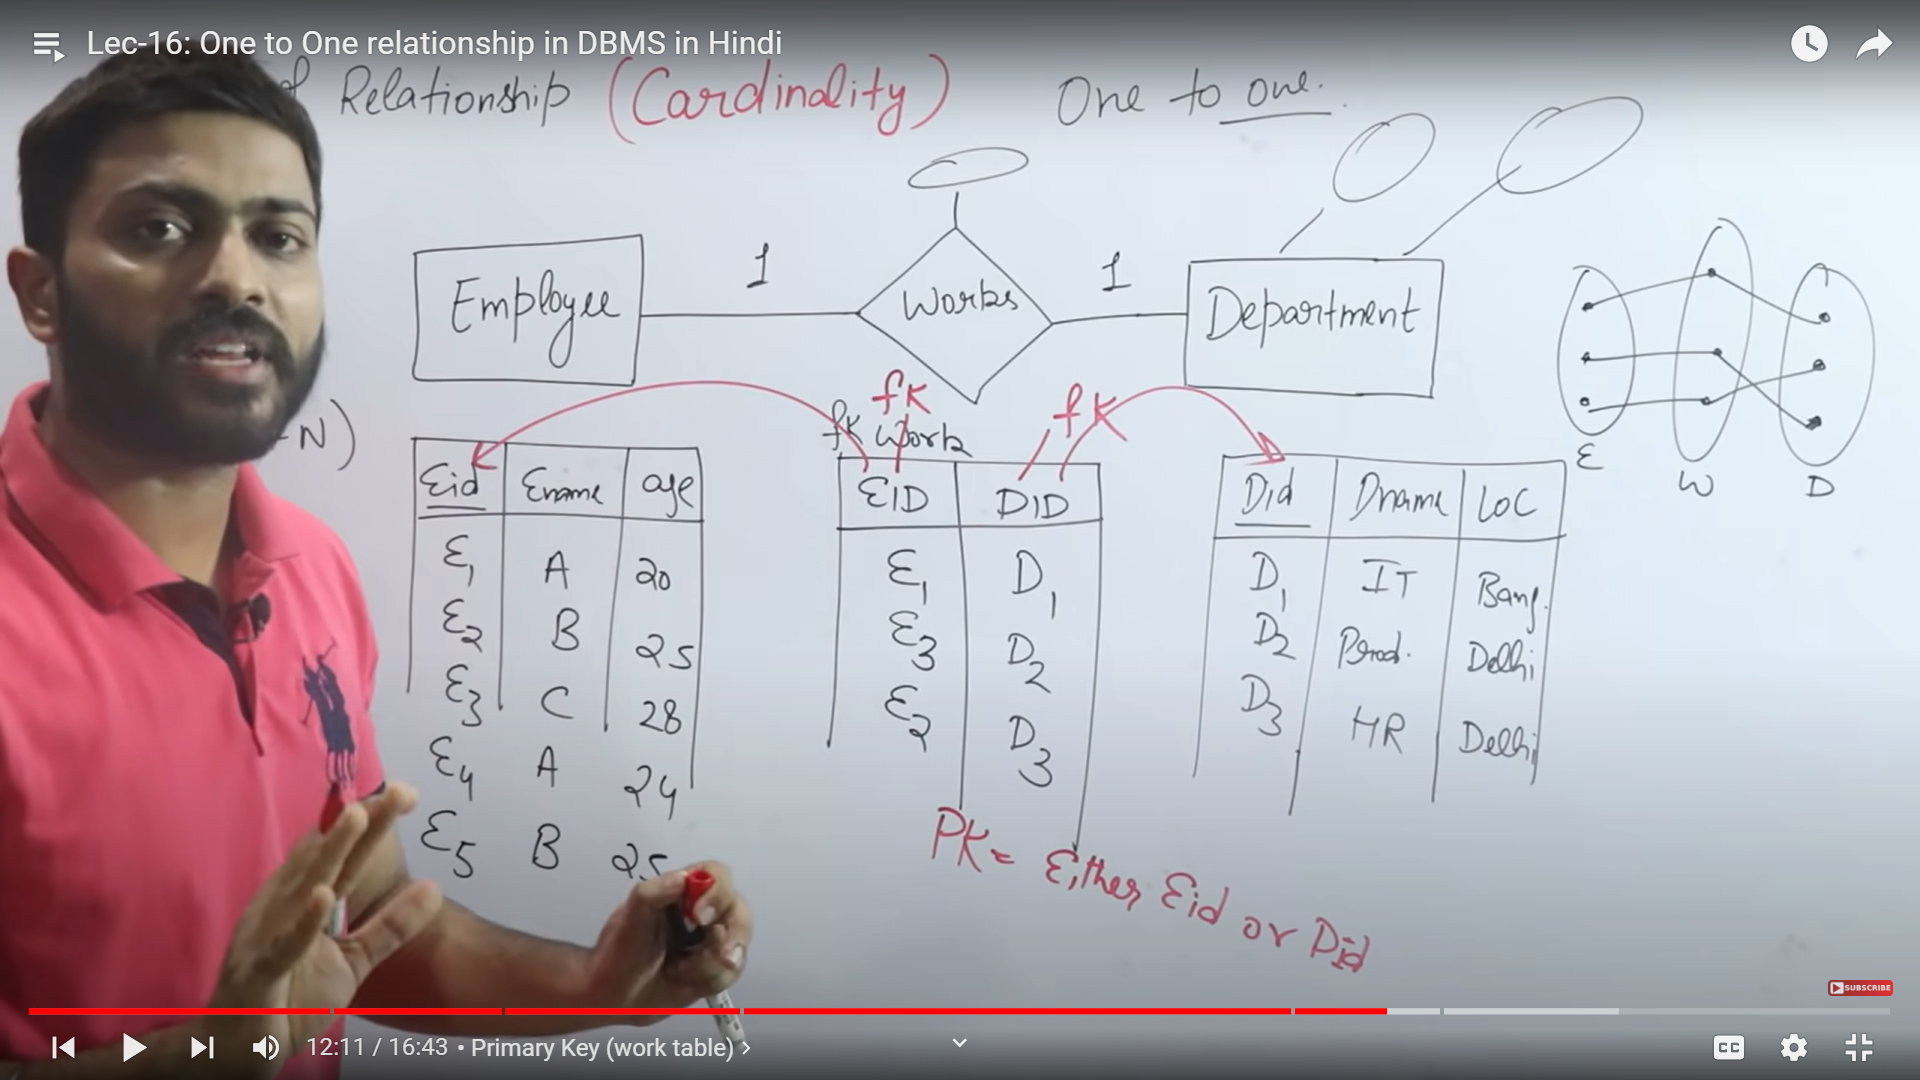 Lec-16: One to One relationship in DBMS in Hindi
of Relationship (Cardinality) One to one.
Employee 1 Works 1 Department
-N)
fK fK
fK Work
Eid Ename age
E1 A 20
E2 B 25
E3 C 28
E4 A 24
E5 B 25
EID DID
E1 D1
E3 D2
E2 D3
Did Dname LOC
D1 IT Bang.
D2 Prod. Delhi
D3 HR Delhi
E W D
PK = Either Eid or Did
SUBSCRIBE
12:11 / 16:43 • Primary Key (work table) >
CC